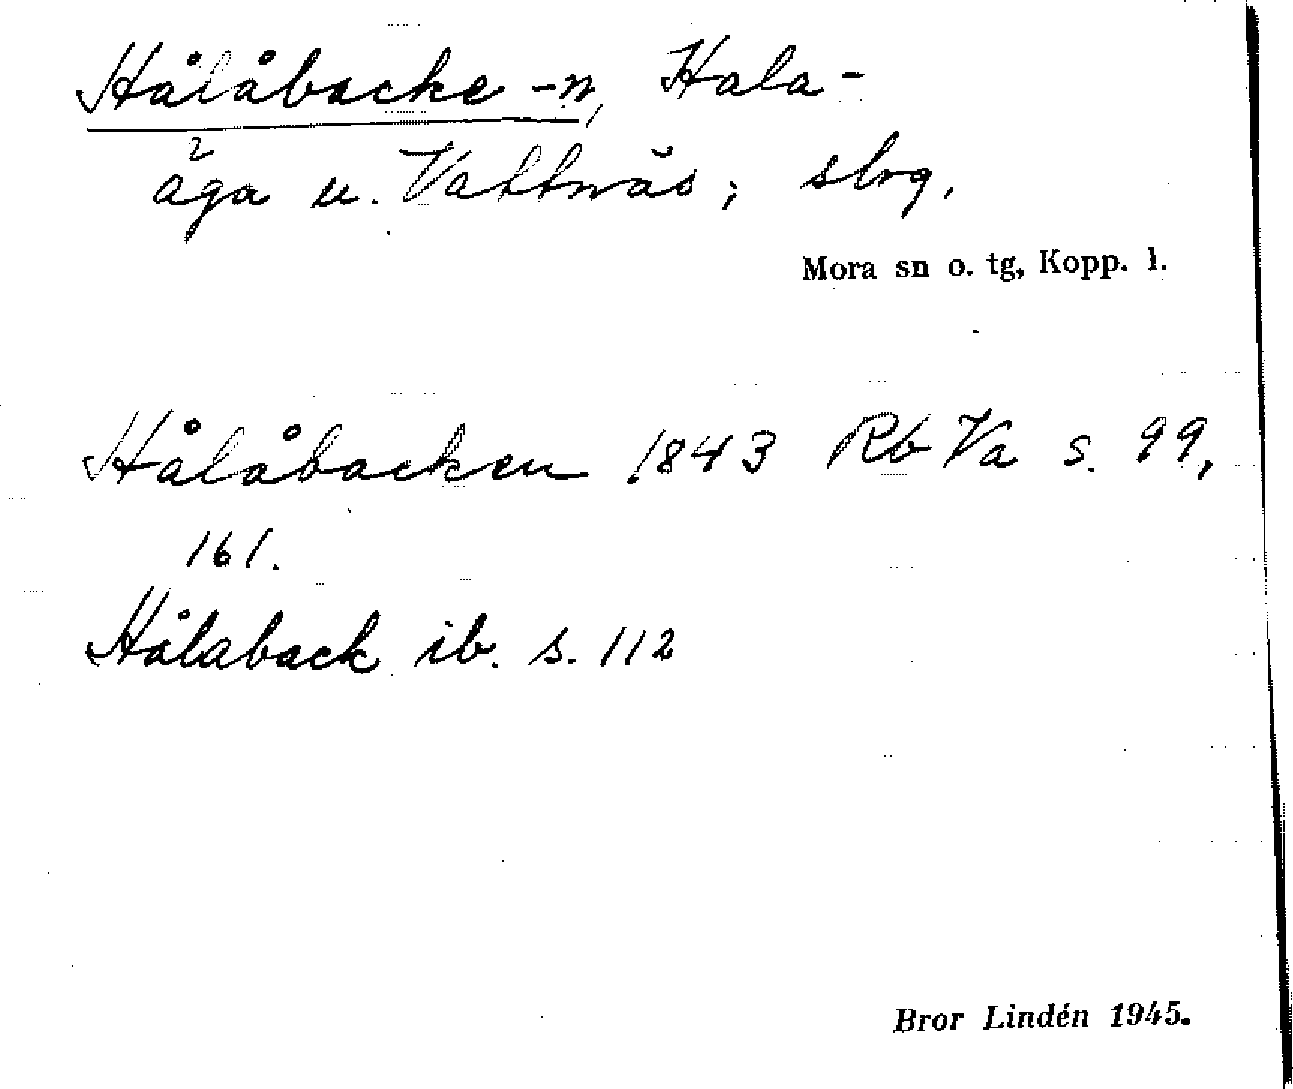 Hålåbacke -n, Hala-
äga u. Vattnäs; slog.
Mora sn o. tg, Kopp. l.
Hålåbacken 1843 Rb Va s. 99,
161.
Hålaback ib. s. 112
Bror Lindén 1945.